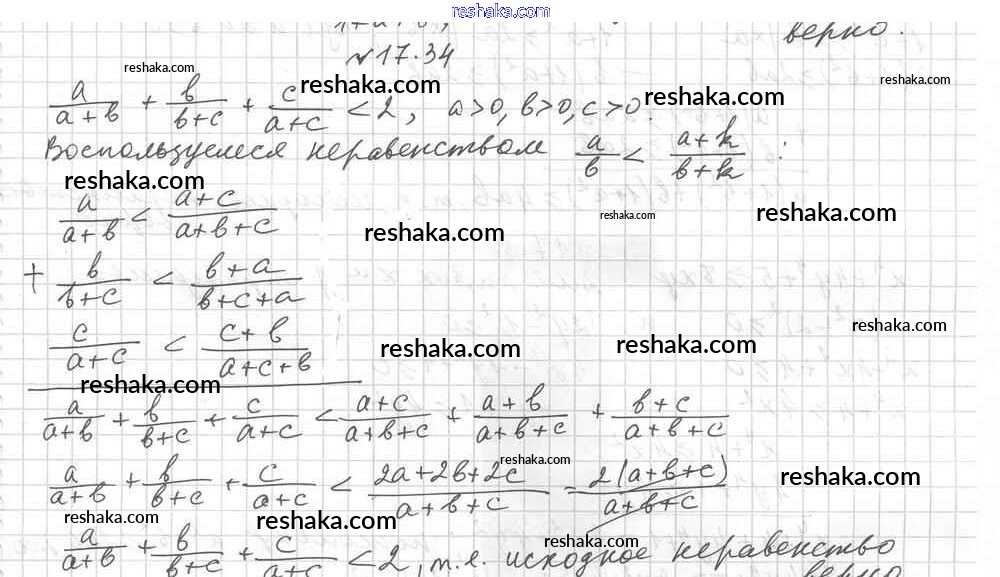 reshaka.com
верно.
№17.34
reshaka.com
a/(a+b) + b/(b+c) + c/(a+c) < 2, a>0, b>0, c>0.
reshaka.com reshaka.com reshaka.com
Воспользуемся неравенством a/b < (a+k)/(b+k) :
reshaka.com
a/(a+b) < (a+c)/(a+b+c)
reshaka.com reshaka.com reshaka.com
+ b/(b+c) < (b+a)/(b+c+a)
c/(a+c) < (c+b)/(a+c+b)
reshaka.com reshaka.com reshaka.com
reshaka.com
a/(a+b) + b/(b+c) + c/(a+c) < (a+c)/(a+b+c) + (a+b)/(a+b+c) + (b+c)/(a+b+c)
reshaka.com
a/(a+b) + b/(b+c) + c/(a+c) < (2a+2b+2c)/(a+b+c) = 2(a+b+c)/(a+b+c)
reshaka.com
reshaka.com reshaka.com
a/(a+b) + b/(b+c) + c/(a+c) < 2, т.е. исходное неравенство
reshaka.com
верно